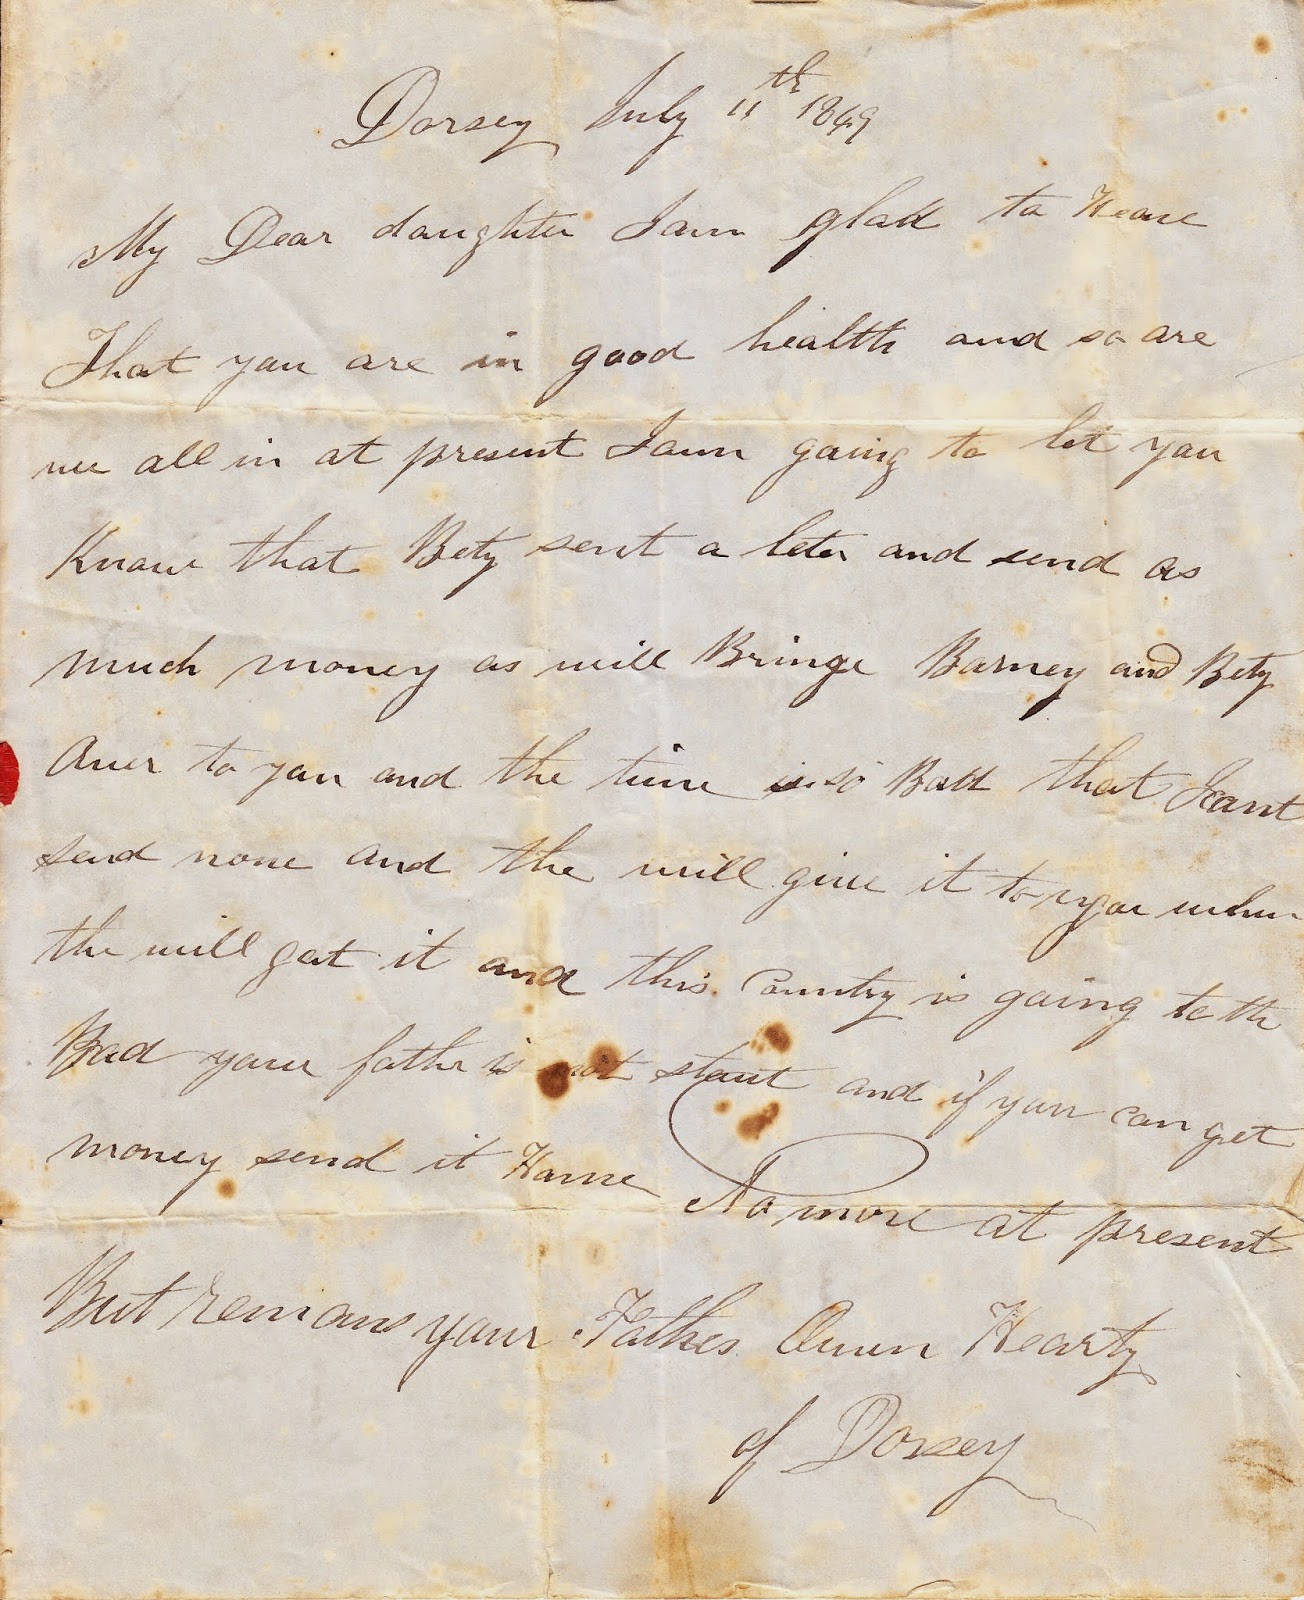 Dorsey July 11th 1849
My Dear daughter I am glad to Heare
That you are in good health and so are
we all in at present I am going to let you
Know that Bety sent a leter and send as
much money as will Bringe Barney and Bety
over to you and the time is so Badd that I cant
send none and the will give it to you when
the will get it and this Country is going to the
Bad your father is not stout and if you can get
money send it Home No more at present
But remans your Father Owen Hearty
of Dorsey